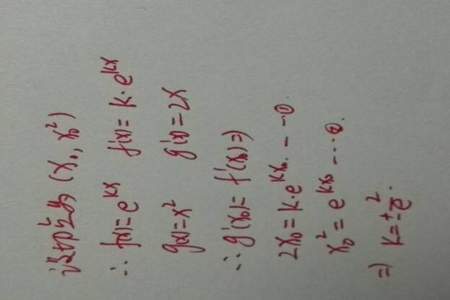 设切点为 (x₀, x₀²)
∴ f(x)=e^{kx} f'(x)=k·e^{kx}
g(x)=x² g'(x)=2x
∴ g'(x₀)= f'(x₀)=)
2x₀=k·e^{kx₀} ---①
x₀²=e^{kx₀} ---②.
=) k=±2/e.